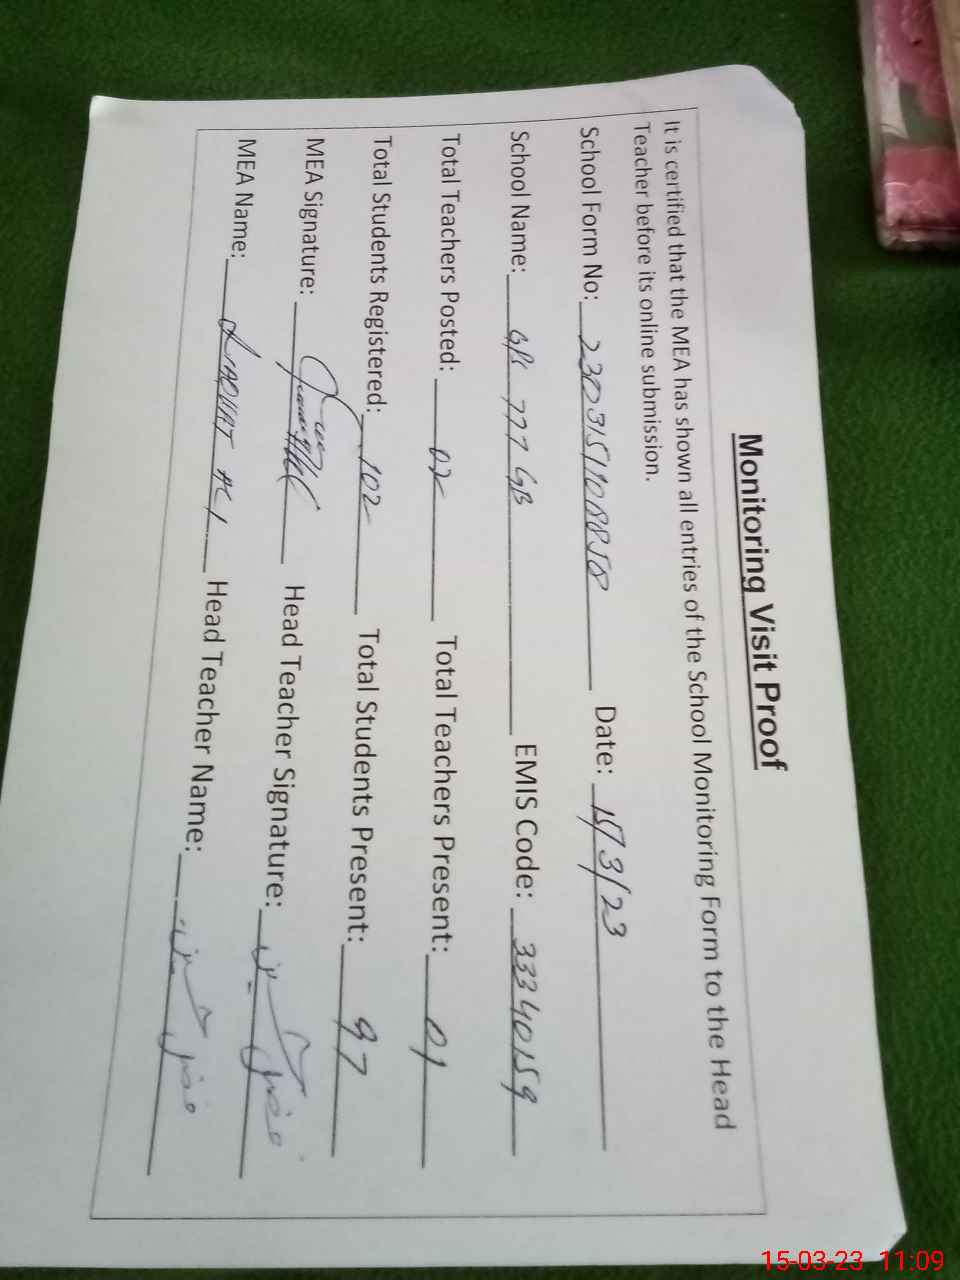 Monitoring Visit Proof
It is certified that the MEA has shown all entries of the School Monitoring Form to the Head
Teacher before its online submission.
School Form No: Date: 15/3/23
School Name: 777 GB EMIS Code: 33340159
Total Teachers Posted: 02 Total Teachers Present: 01
Total Students Registered: 102 Total Students Present: 97
MEA Signature: Head Teacher Signature:
MEA Name: Head Teacher Name:
15-03-23 11:09